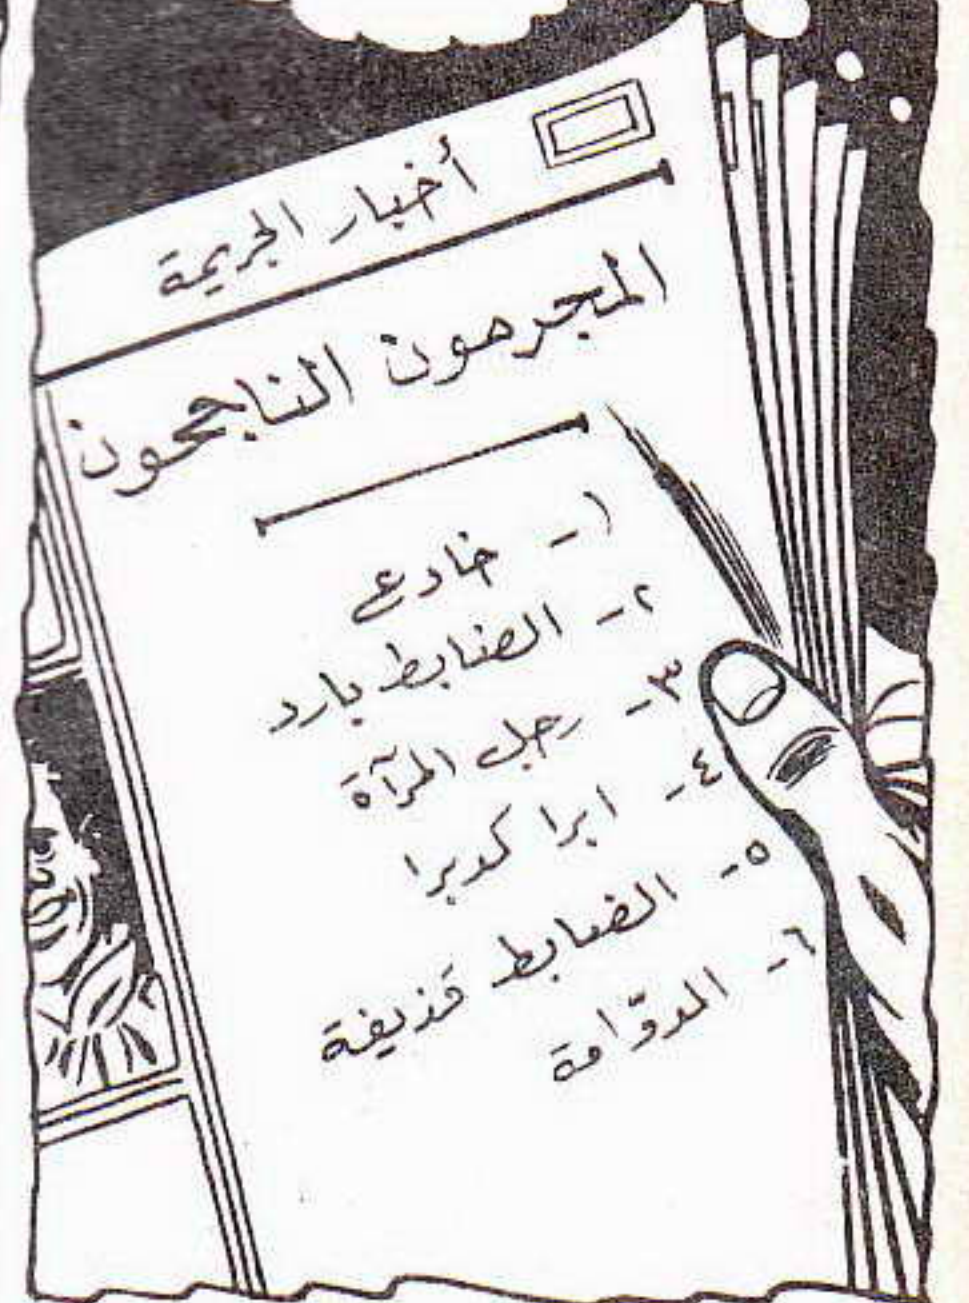 أخبار الجريمة
المجرمون الناجحون
١- خادع
٢- الضابط بارد
٣- رجل المرآة
٤- ابرا كدبرا
٥- الضابط قذيفة
٦- الدوّامة